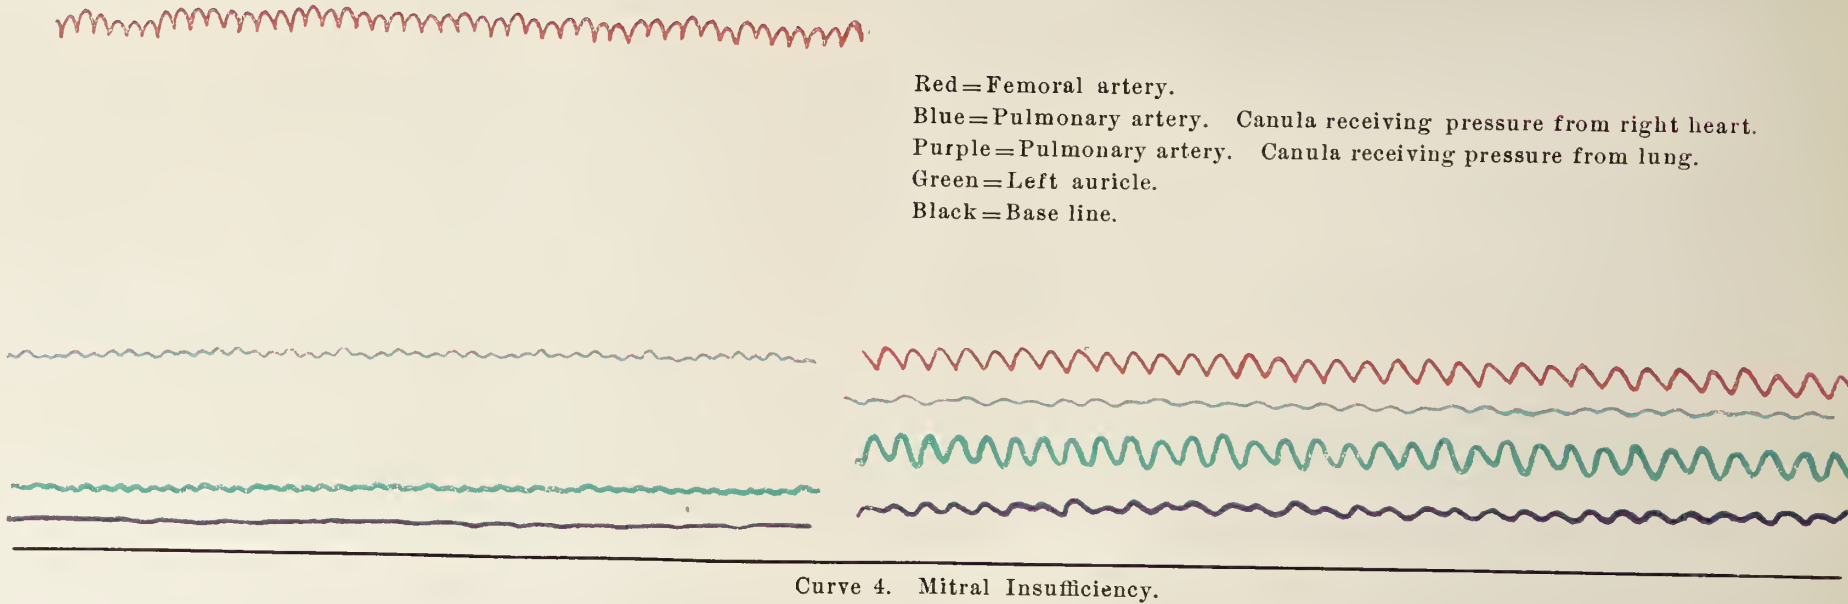 Red=Femoral artery.
Blue=Pulmonary artery. Canula receiving pressure from right heart.
Purple=Pulmonary artery. Canula receiving pressure from lung.
Green=Left auricle.
Black=Base line.
Curve 4. Mitral Insufficiency.